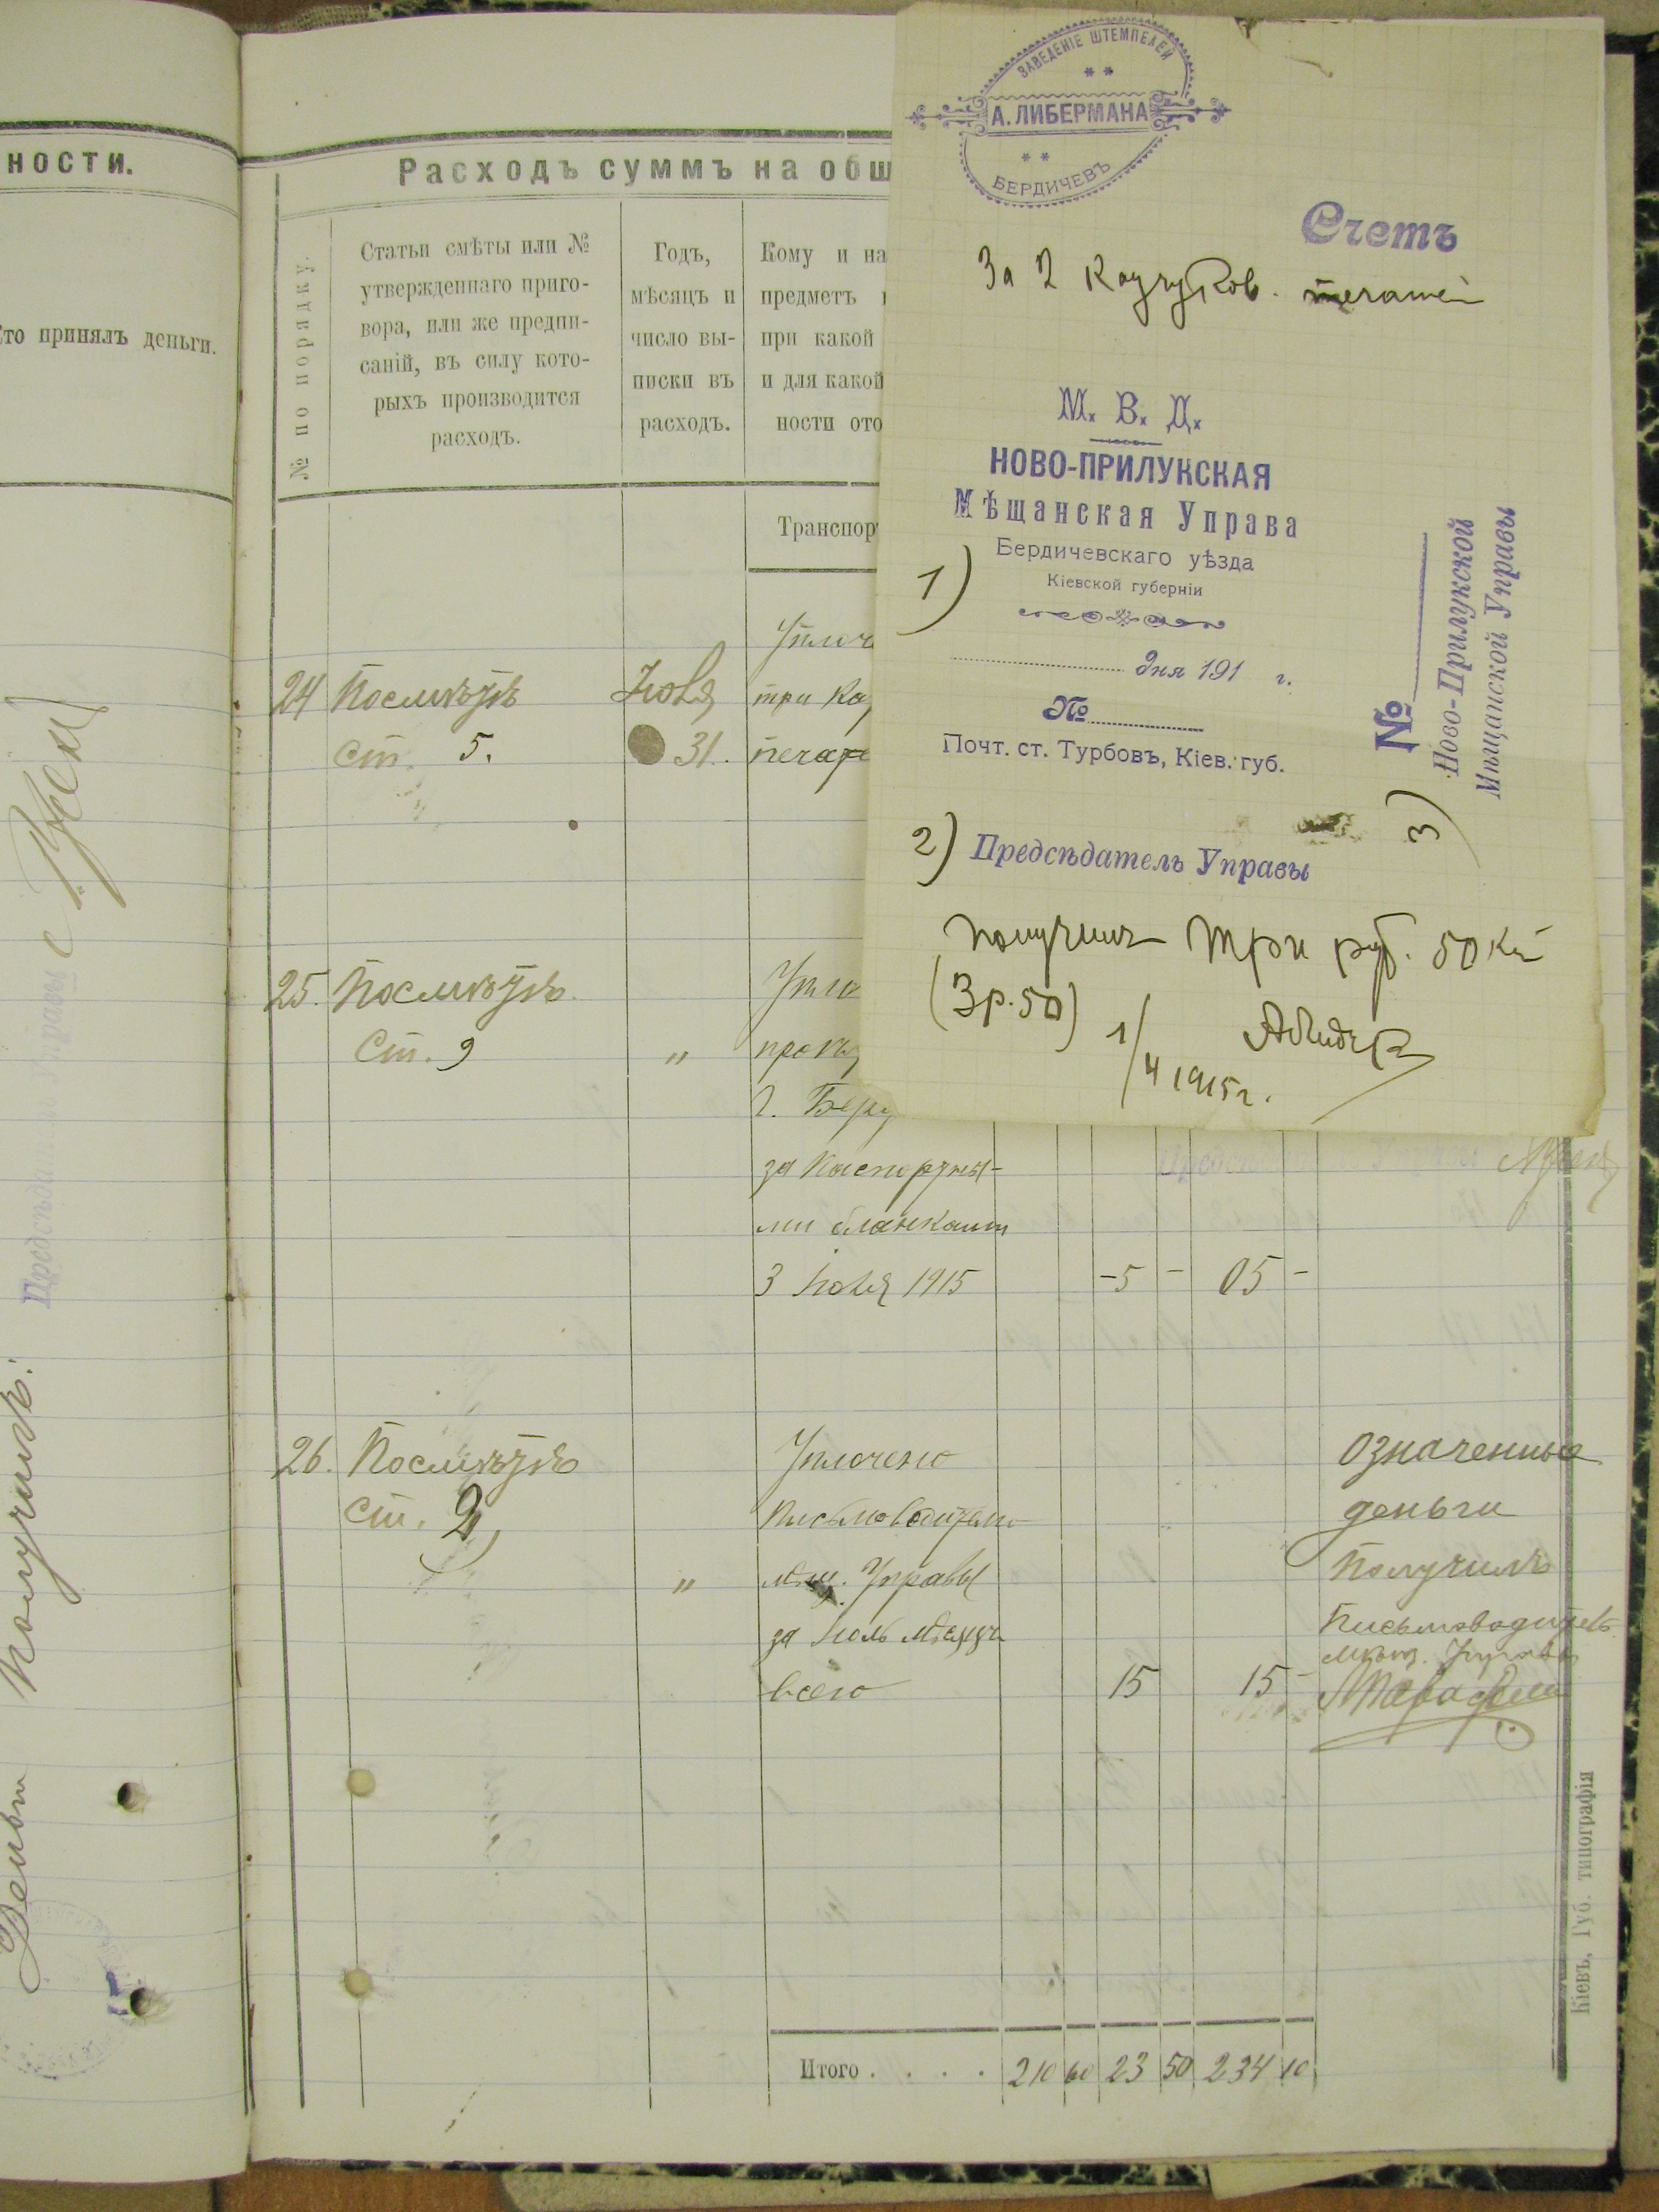 ности.
Кто принялъ деньги.
Получилъ.
Предсѣдатель Управы
Расходъ суммъ на общ
№ по порядку.
Статьи смѣты или №
утвержденнаго приго-
вора, или же предпи-
саній, въ силу кото-
рыхъ производится
расходъ.
Годъ,
мѣсяцъ и
число вы-
писки въ
расходъ.
Кому и на
предметъ
при какой
и для какой
ности ото
Транспор
24
Іюля
три Ка
ст. 5.
31.
печат
25.
Упло
Ст. 9
"
г. Берд
за паспортны-
ми бланками
3 Іюля 1915
-5 - 05 -
26.
Уплочено
ст. 2
Письмоводителю
" мѣщ. Управы
за Іюль мѣсяцъ
всего
15
15 -
Означенные
деньги
Получилъ
Письмоводитель
мѣщ. Управы
Итого . . . . 210 60 23 50 234 10
Кіевъ, Губ. типографія
ЗАВЕДЕНІЕ ШТЕМПЕЛЕЙ
А. ЛИБЕРМАНА
БЕРДИЧЕВЪ
Счетъ
За 2 Каучуков. печатей
М. В. Д.
НОВО-ПРИЛУКСКАЯ
Мѣщанская Управа
Бердичевскаго уѣзда
Кіевской губерніи
1)
дня 191 г.
№
Почт. ст. Турбовъ, Кіев. губ.
2) Предсѣдатель Управы
3)
№
Ново-Прилукской
Мѣщанской Управы
получилъ три руб. 50 к
(3 р. 50)
1/4 1915 г.